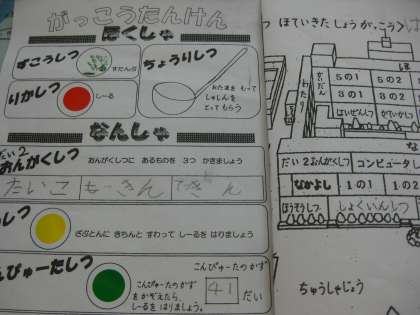 がっこうたんけん
ほくしゃ
ずこうしつ
すたんぷ
ちょうりしつ
おたまを もって
しゃしんを
とってもらう
りかしつ
しーる
なんしゃ
だい2
おんがくしつ
おんがくしつに あるものを 3つ かきましょう
たいこ
もっきん
てっきん
しつ
ざぶとんに きちんと すわって しーるを はりましょう
んぴゅーたしつ
こんぴゅーたの かず
をかぞえたら、
しーるを はりましょう。
こんぴゅーたのかず
41
だい
ほていきたしょうがっこう
わたり
かいだん
5の1
5の2
3の1
3の2
はいぜんしつ
かていかしつ
だい2おんがくしつ
コンピュータし
なかよし
1の1
1の
ほうそうしつ
しょくいんしつ
ちゅうしゃじょう